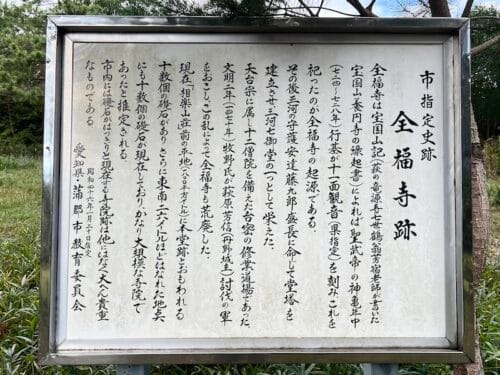 市指定史跡
全福寺跡
全福寺は宝国山記(萩の竜源寺七世鶴翁芳宿老師が書いた
宝国山養円寺の縁起書)によれば聖武帝の神亀年中
(七二四-七二八年)行基が十一面観音(県指定)を刻みこれを
祀ったのが全福寺の起源である。
その後三河の守護安達藤九郎盛長に命じて堂塔を
建立させ三河七御堂の一つとして栄えた。
天台宗に属し十二僧院を備えた台密の修業道場であった。
文明二年(一四七十年)牧野氏が萩原芳信(丹野城主)討伐の軍
をおこしこの乱によって全福寺も荒廃した。
現在「相楽山荘前の平地」は本堂跡とおもわれる
十数個の礎石がありさらに東南二六メートルほどはなれた地点
にも十数個の礎石が現在しており、かなり大規模な寺院で
あったと推定される。
市内には礎石がはっきりと現在する寺院跡は他にはなく大へん貴重
なものである。
昭和四十六年一月二十日指定
愛知県・蒲郡市教育委員会